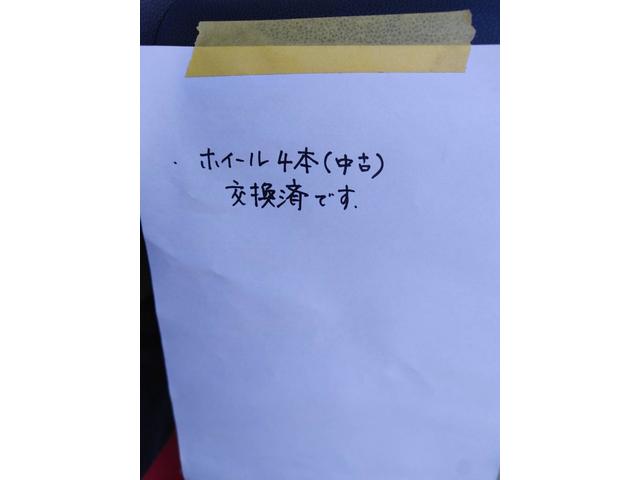 ・ホイール4本(中古)
交換済です.